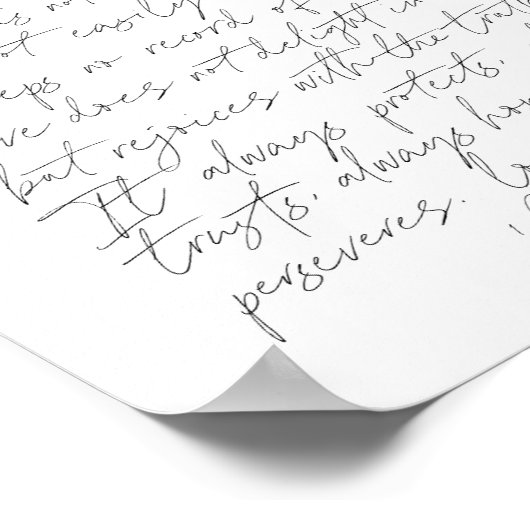 ot easily
eeps no record of
ve does not delight in
but rejoices with the truth
It always protects,
trusts, always ho
perseveres. Lo